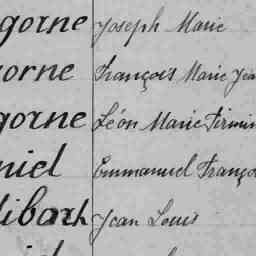 gorne Joseph Marie
gorne François Marie Jea
gorne Léon Marie Firmin
niel Emmanuel Franço
libarh Jean Louis